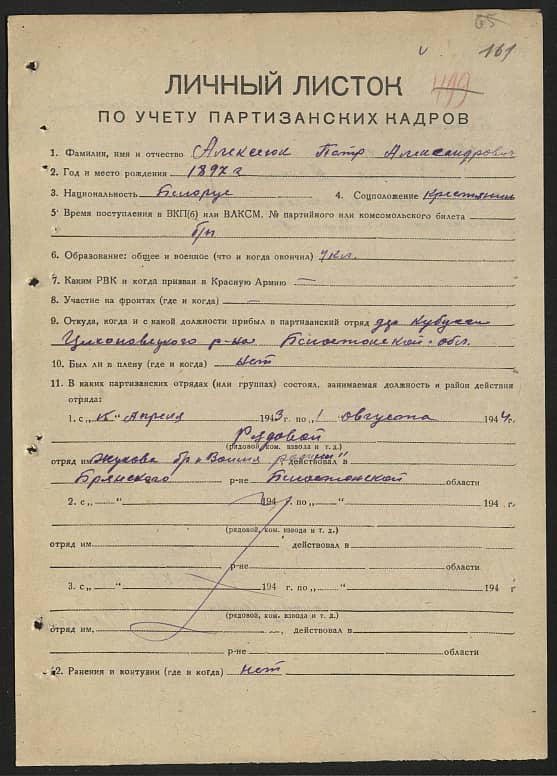 65
161
ЛИЧНЫЙ ЛИСТОК 499
ПО УЧЕТУ ПАРТИЗАНСКИХ КАДРОВ
1. Фамилия, имя и отчество Алексюк Петр Александрович
2. Год и место рождения 1897 г
3. Национальность Белорус 4. Соцположение крестьянин
5. Время поступления в ВКП(б) или ВЛКСМ, № партийного или комсомольского билета
б/п
6. Образование: общее и военное (что и когда окончил) 4 кл.
7. Каким РВК и когда призван в Красную Армию —
8. Участие на фронтах (где и когда) —
9. Откуда, когда и с какой должности прибыл в партизанский отряд дер
Цехановецкого р-на Белостокской обл.
10. Был ли в плену (где и когда) нет
11. В каких партизанских отрядах (или группах) состоял, занимаемая должность и район действия
отряда:
1. с „ " Апреля 1943 г. по „1 августа 1944 г.
Рядовой
(рядовой, ком. взвода и т. д.)
отряд им Жукова бр-а действовал в
Брянского р-не Белостокской области
2. с „ " 194 г. по „ " 194 г.
(рядовой, ком. взвода и т. д.)
отряд им. действовал в
р-не области
3. с „ " 194 г. по „ " 194 г
(рядовой, ком. взвода и т. д.)
отряд им. , действовал в
р-не области
12. Ранения и контузии (где и когда) нет